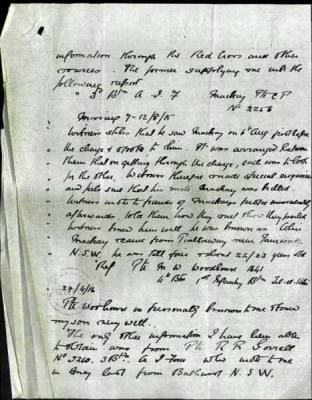 information through the Red Cross and other
sources. The former supplying me with the
following report
" 3rd Btn A I F Mackay Pte E P
No 2256
Missing 7-12/8/15
Witness states that he saw Mackay on 6th Aug just before
the charge & spoke to them. It was arranged between
them that on getting through the charge, each was to look
for the other. Witness therefore made special enquiries
and feels sure that his mate Mackay was killed.
Witness wrote to friends of Mackay's people immediately
afterwards. told them how they and how they parted
Witness knew him well he was known as
Mackay came from Tralloway near Tamworth
N.S.W. he was tall fair about 22/23 years old
Ref Pte M W Woodhouse 1641
4th Btn 1st Infantry Btn Tel-el-Kebir
27/4/16
Pte Woodhouse is personally known to me & knew
my son very well.
The only other information I have been able
to obtain was from Pte R R Dorrell
No 1320. 3 Btn. A I Force who wrote to me
in last from Bathurst N.S.W.